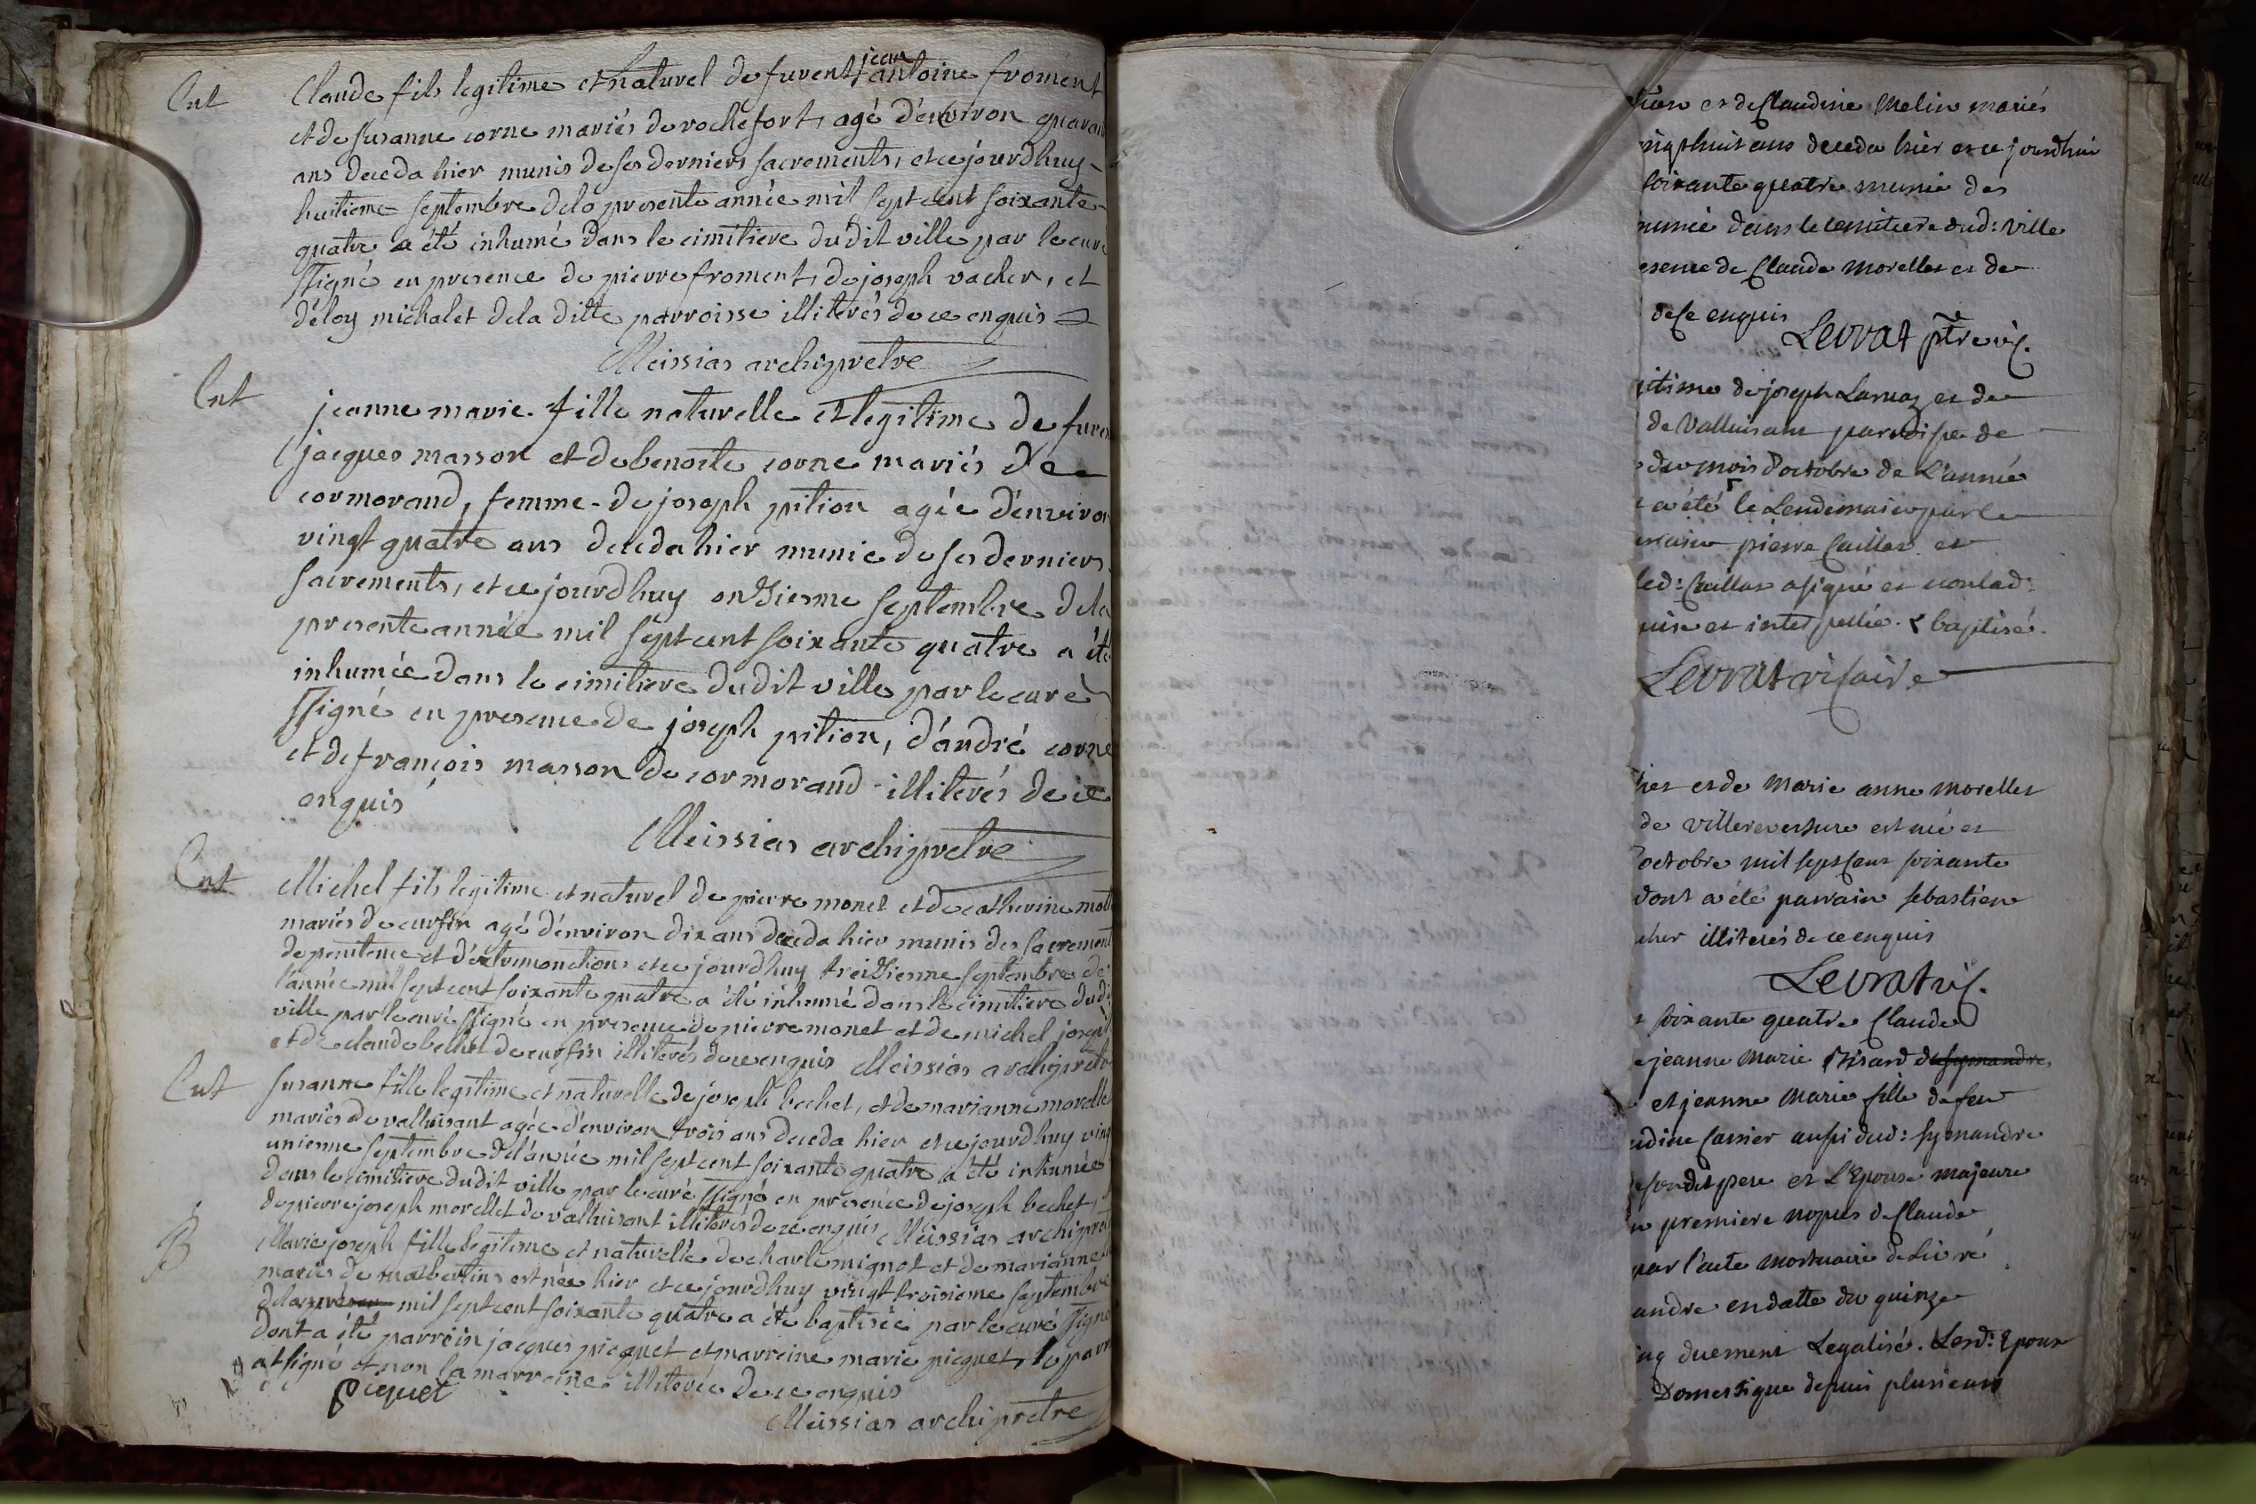 Ent
Claude fils legitime et naturel de fuvent jean antoine froment
et de susanne corne mariés de rochefort, agé d'environ quaran
ans deceda hier munis de ses derniers sacrements, et ce jourdhuy
huitieme septembre dela presente année mil sept cent soixante
quatre a été inhumé dans le cimitiere dudit ville par le curé
ssigné en presence de pierre froment, de joseph vacher, et
d'éloy michalet dela ditte parroisse illiterés de ce enquis
Meissias archiprêtre
Ent
jeanne marie fille naturelle et legitime de fuvent
jacques masson et de benoite corne mariés de
cormorand, femme de joseph pition agée d'environ
vingt quatre ans deceda hier munie de ses derniers
sacrements, et ce jourdhuy onziesme septembre dela
presente année mil sept cent soixante quatre a été
inhumée dans le cimitiere dudit ville par le curé
ssigné en presence de joseph pition, d'andré corne
et de françois masson de cormorand illiterés de ce
enquis
Meissias archiprêtre
Ent
Michel fils legitime et naturel de pierre monet et de catherine
mariés de curfin agé d'environ dix ans deceda hier munis des sacrement
de penitence et d'extremonction, et ce jourdhuy treizieme septembre de
l'année mil sept cent soixante quatre a été inhumé dans le cimitiere dud
ville par le curé ssigné en presence de pierre monet et de michel joseph
et de claude bechet de curfin illiterés de ce enquis Meissias archiprêtre
Ent
susanne fille legitime et naturelle de joseph bechet, et de marianne morellet
mariés de valluisant agée d'environ trois ans deceda hier et ce jourdhuy vingt
unieme septembre de l'année mil sept cent soixante quatre a été inhumée
dans le cimitiere dudit ville par le curé ssigné en presence de joseph bechet,
de pierre joseph morellet de valluisant illiterés de ce enquis Meissias archiprêt
B
Marie joseph fille legitime et naturelle de charle mignot et de marianne
mariés de est née hier et ce jourdhuy vingt troisieme septembre
mil sept cent soixante quatre a été baptisée par le curé ssigné
dont a été parrein jacques picquet et marreine marie picquet, le parr
a signé et non la marreine illiterée de ce enquis
Picquet
Meissias archiprêtre
et de Claudine Melin mariés
huit ans deceda hier et ce jourdhui
soixante quatre munie des
humée dans le cemitiere dud: ville
esence de Claude Morellet et de
de ce enquis
Levrat ptre vic.
itime de joseph Larnaz et de
de Valluisant paroisse de
du mois d'octobre de L'année
a été le Lendemain par le
pierre Caillat et
led: Caillat a signé et non lad:
uise et interpellée. baptisé.
Levrat vicaire
et de Marie anne Morellet
de villereversure est né et
octobre mil sept cent soixante
dont a été parrain sebastien
cher illiterés de ce enquis
Levrat vic.
soixante quatre Claude
jeanne Marie
et jeanne Marie fille de feu
udine Carrier aussi dud: symandre
dit pere et L'Epouse majeure
premiere nopces de Claude
par l'acte mortuaire delivré
andre en datte du quinze
duement Legalisé. Lesd: Epoux
Domestique depuis plusieurs